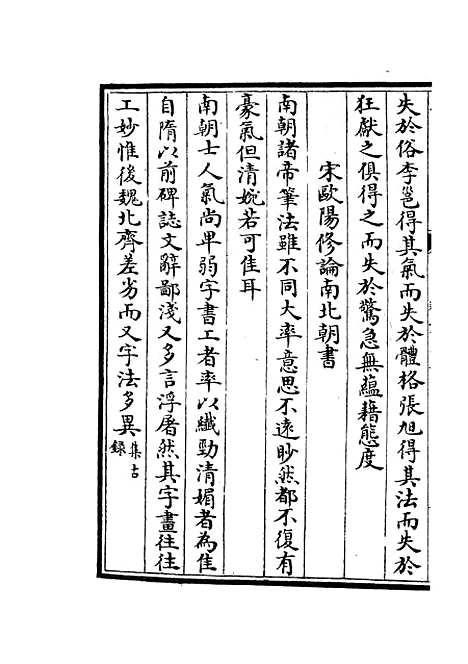 失於俗李邕得其氣而失於體格張旭得其法而失於
狂獻之俱得之而失於驚急無蘊藉態度
宋歐陽修論南北朝書
南朝諸帝筆法雖不同大率意思不逺眇然都不復有
豪氣但清婉若可佳耳
南朝士人氣尚卑弱字書工者率以纎勁清媚者為佳
自隋以前碑誌文辭鄙淺又多言浮屠然其字畫往往
工妙惟後魏北齊差劣而又字法多異集古
錄